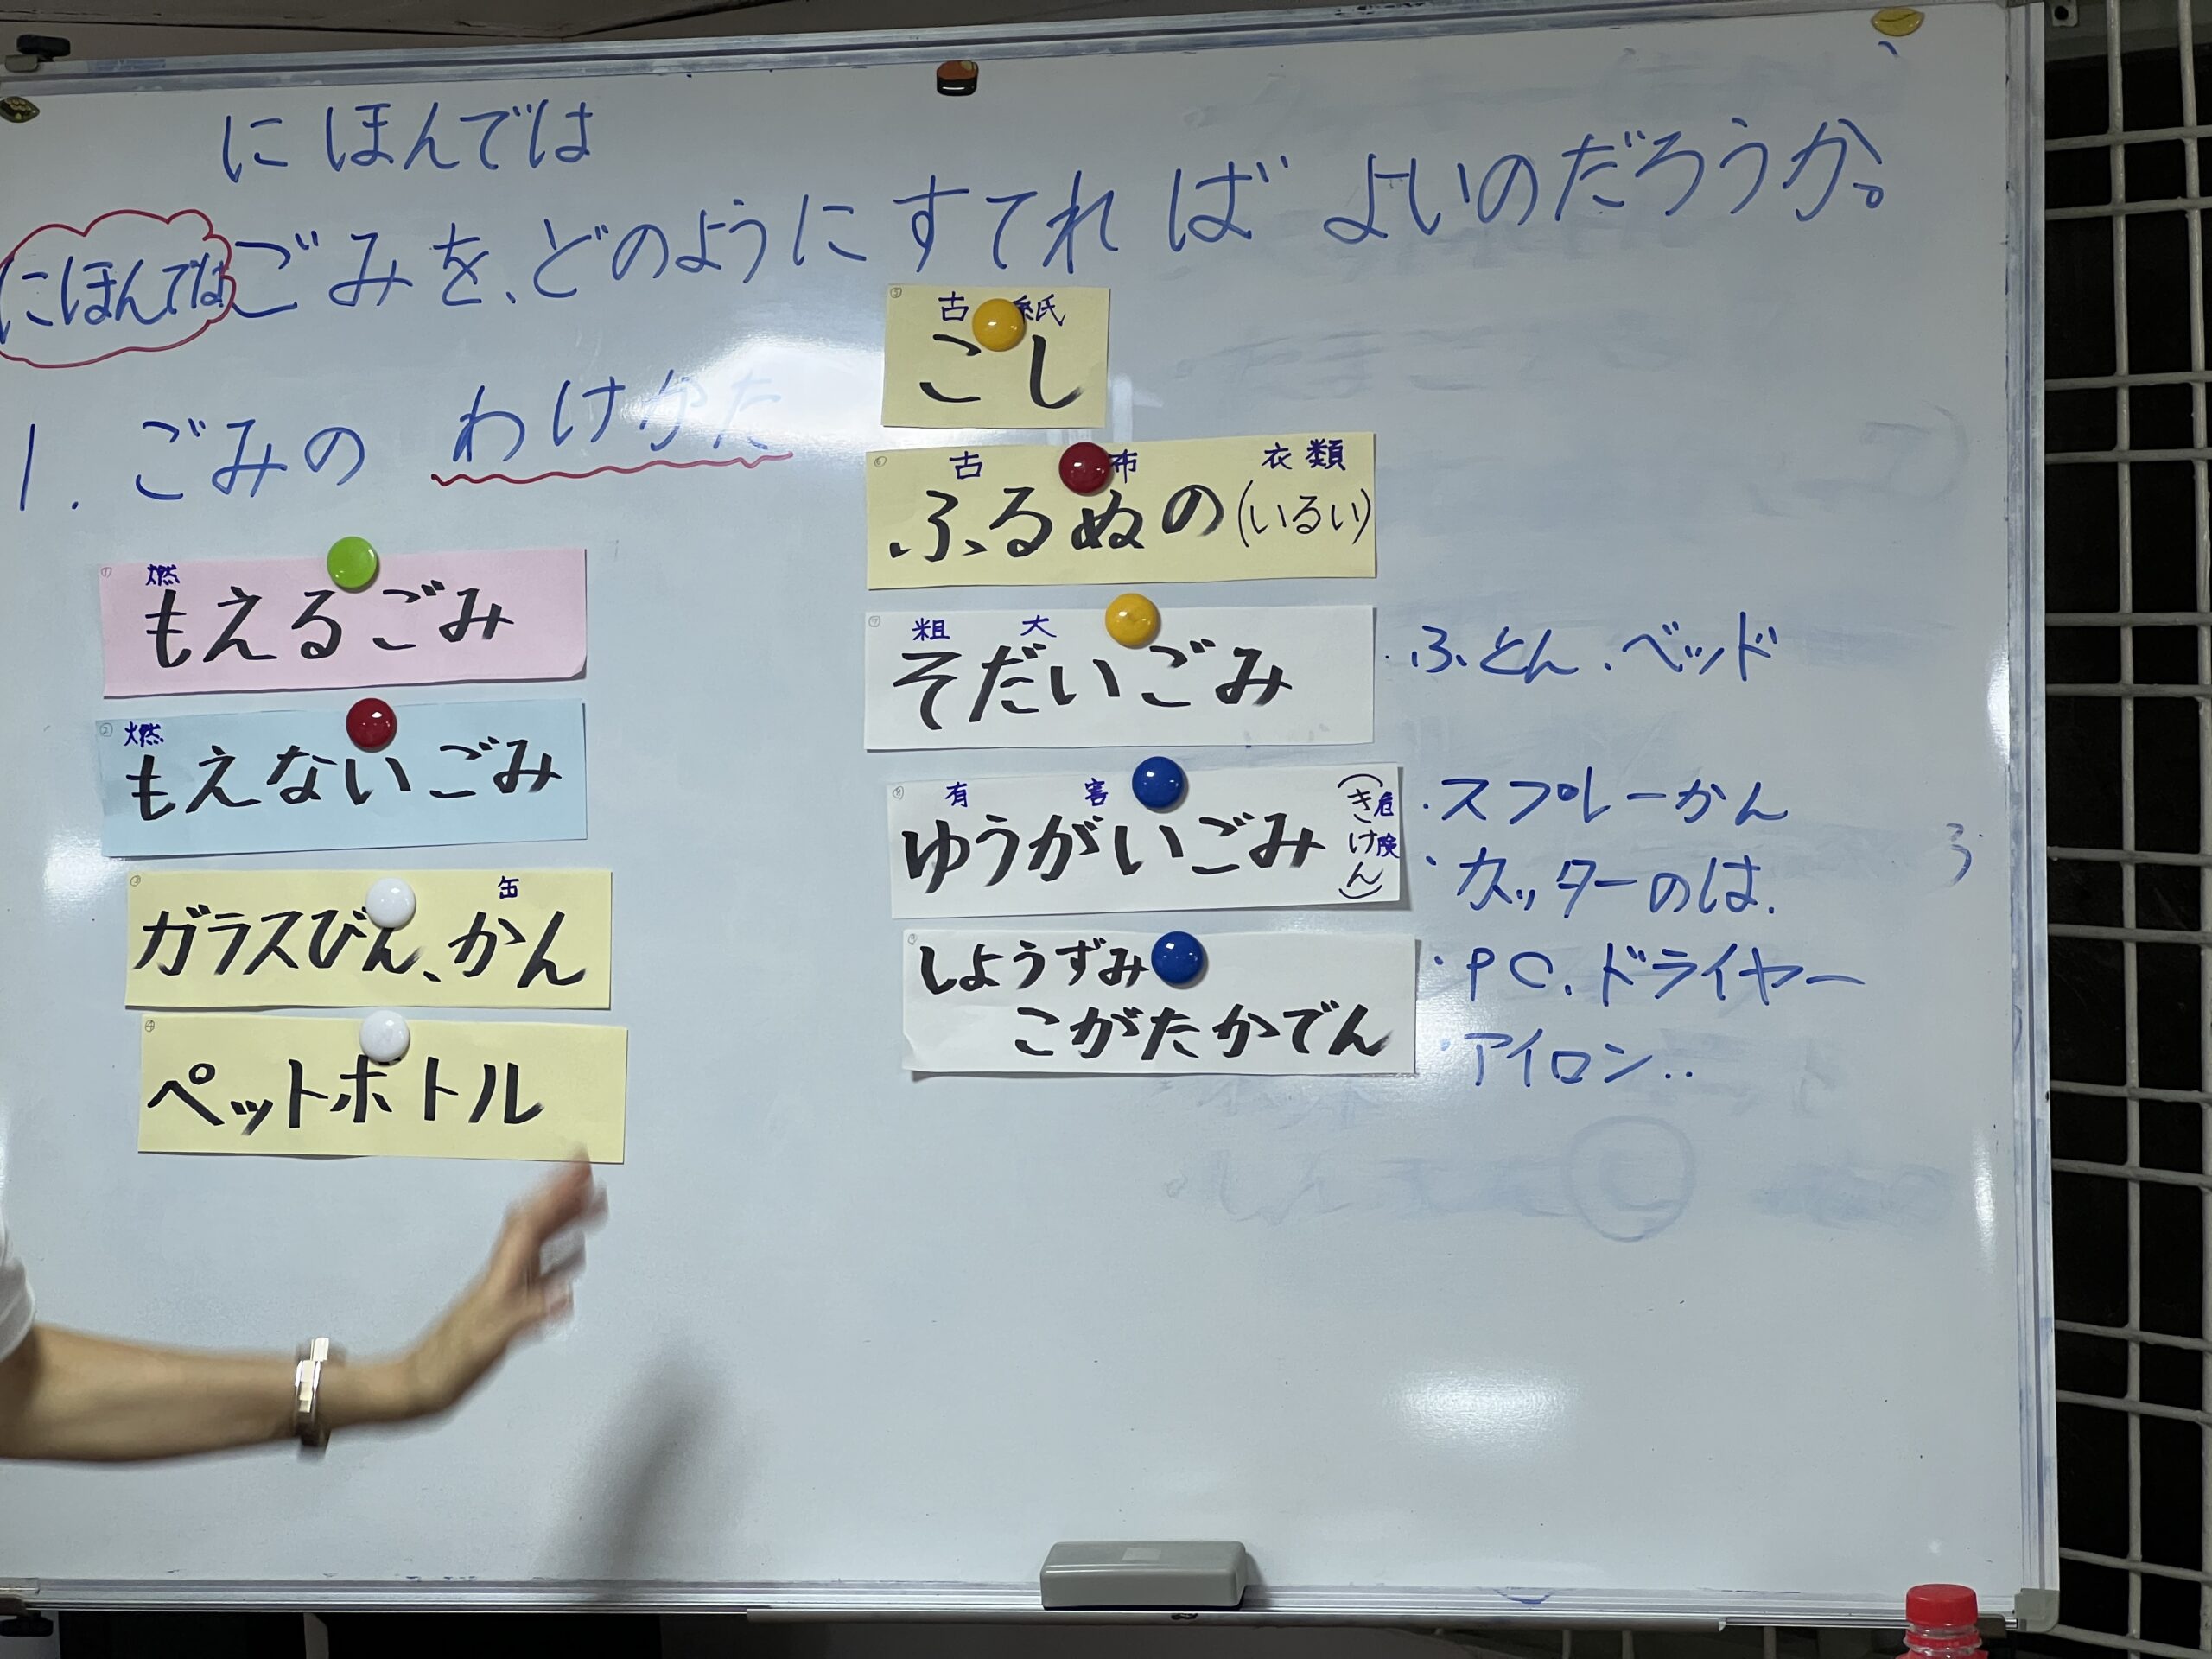 にほんでは
にほんでは ごみを、どのようにすてれば よいのだろうか。
1. ごみの わけかた
① 燃
もえるごみ
② 燃
もえないごみ
③ 缶
ガラスびん、かん
④
ペットボトル
⑤ 古 紙
こし
⑥ 古 布 衣類
ふるぬの(いるい)
⑦ 粗 大
そだいごみ ・ふとん、ベッド
⑧ 有 害
ゆうがいごみ (きけん) 危険
・スプレーかん
・カッターのは、
⑨
しようずみ
こがたかでん
・PC、ドライヤー
・アイロン‥